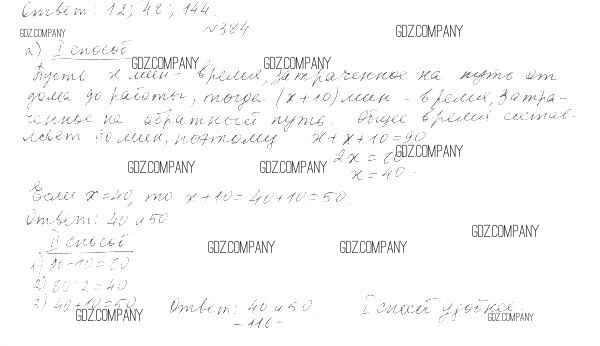 Ответ: 12; 48; 144.
№384
GDZ.COMPANY
GDZ.COMPANY
а) I способ
GDZ.COMPANY
GDZ.COMPANY
Пусть x мин - время, затраченное на путь от
дома до работы, тогда (x+10) мин - время, затра-
ченное на обратный путь. Общее время состав-
ляет 90 мин, поэтому x + x + 10 = 90
2x = 80
GDZ.COMPANY
x = 40.
GDZ.COMPANY
GDZ.COMPANY
Если x = 40, то x + 10 = 40 + 10 = 50.
Ответ: 40 и 50
GDZ.COMPANY
II способ
GDZ.COMPANY
GDZ.COMPANY
1) 90 - 10 = 80
2) 80 : 2 = 40
3) 40 + 10 = 50 Ответ: 40 и 50. I способ удобнее.
GDZ.COMPANY
GDZ.COMPANY
- 116 -